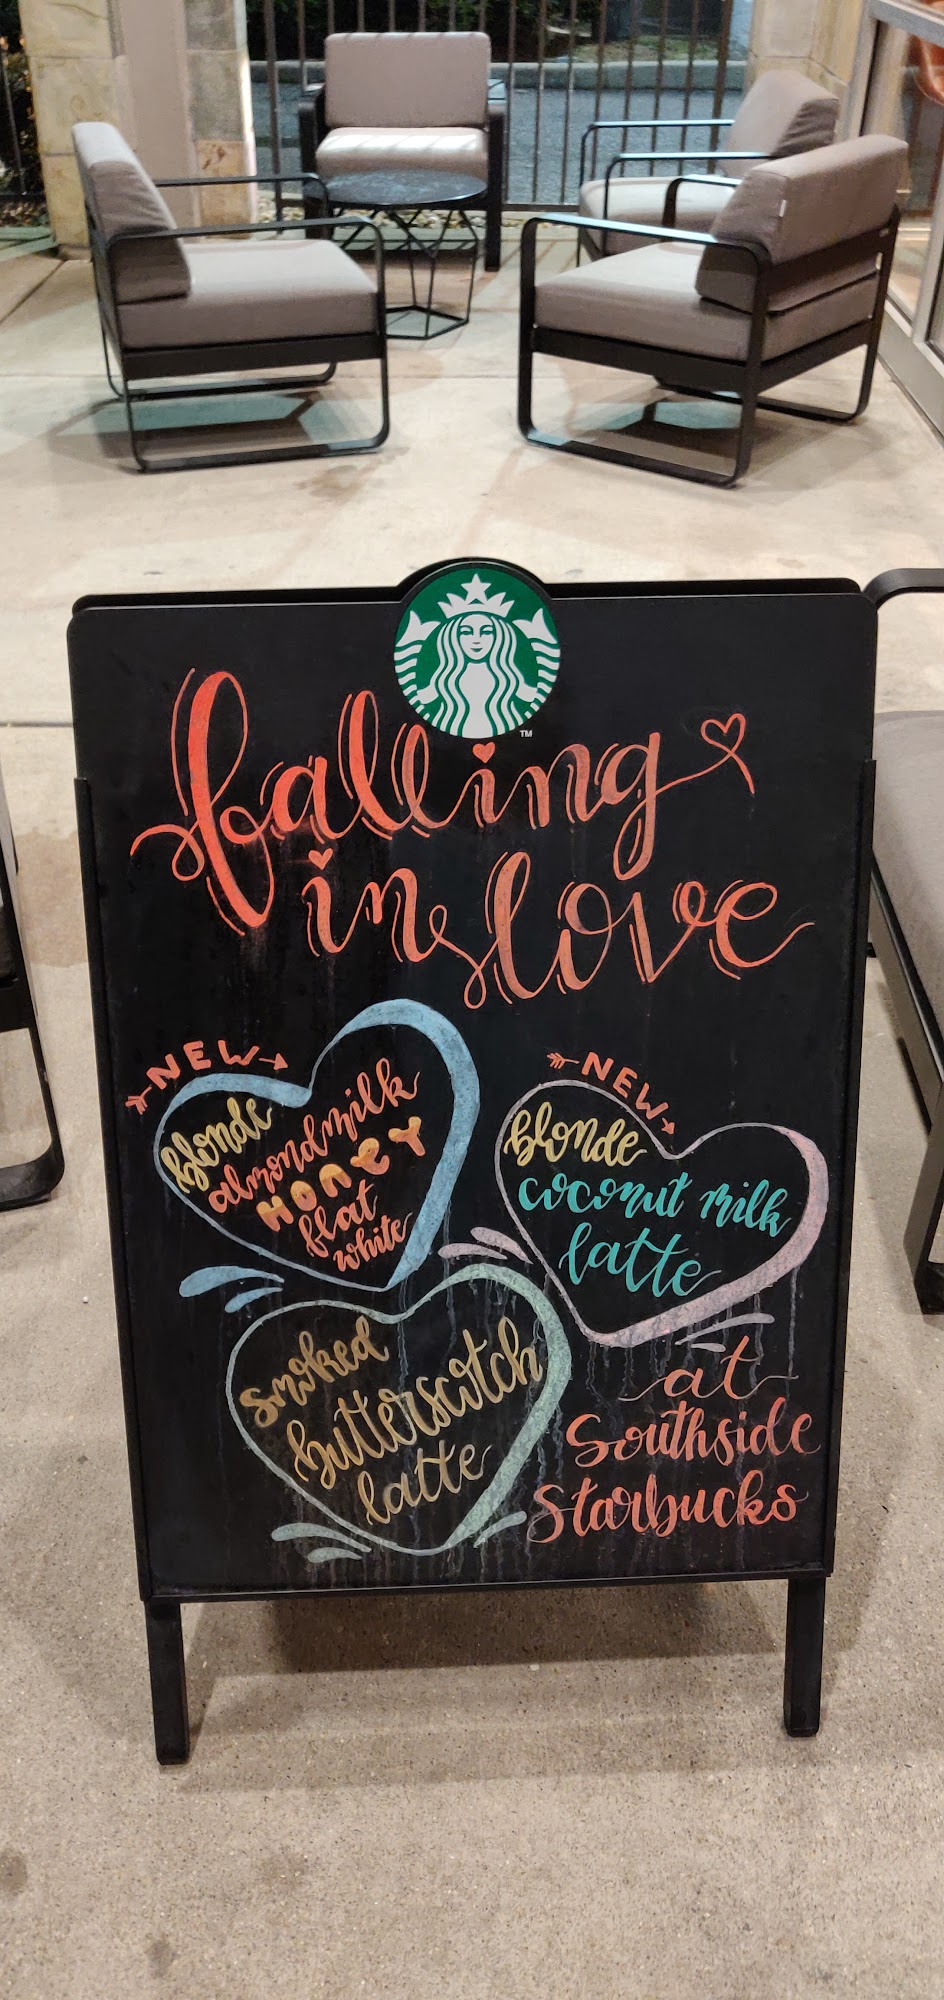 TM
falling
in love
NEW
blonde
almondmilk
HONEY
flat
white
NEW
blonde
coconut milk
latte
smoked
butterscotch
latte
at
Southside
Starbucks